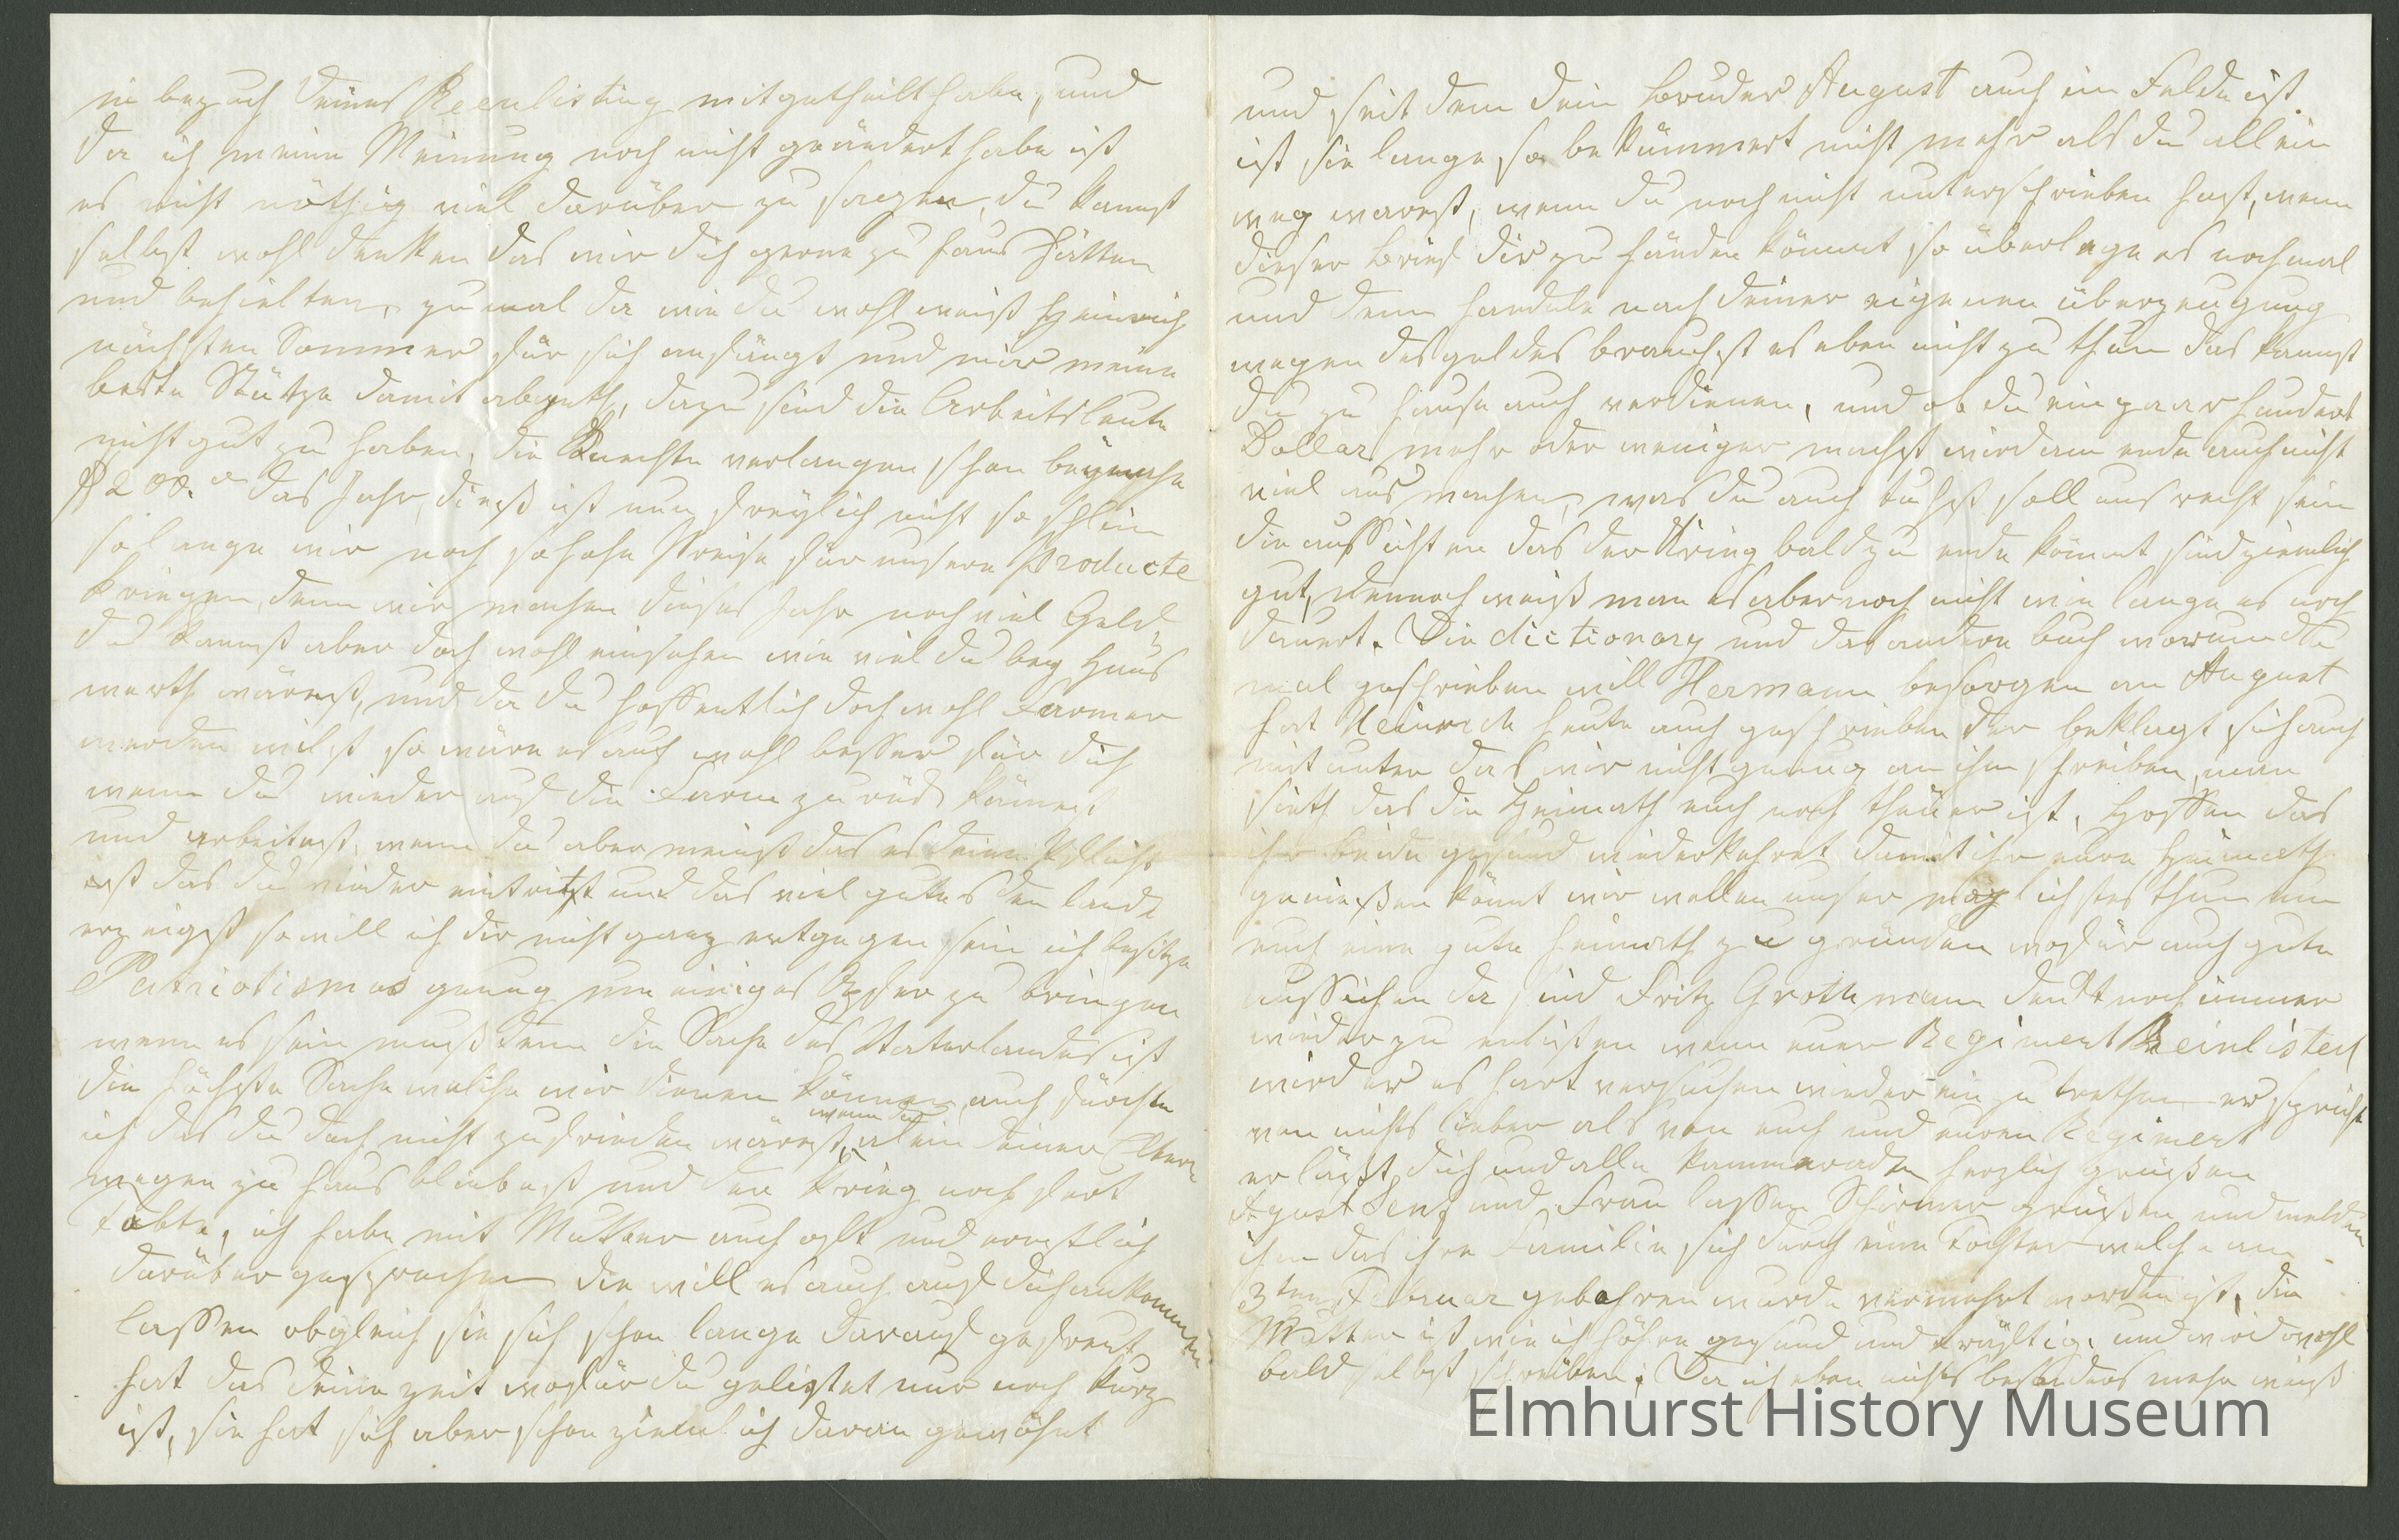 in bezuch deines Reenlisting mitgetheilt habe, und
da ich meine Meinung noch nicht geändert habe ist
es nicht nöthig viel darüber zu sagen, du kannst
selbst wohl denken das wir dich gerne zu haus hätten
und behielten, zumal da wie du wohl weist Heinrich
nächsten Sommer für sich anfängt und mir meine
beste Stütze damit abgeth, dazu sind die Arbeitsleute
nicht gut zu haben, die Knechte verlangen schon beynahe
$200.00 das Jahr, dieß ist nun freylich nicht so schlim
so lange wir noch so hohe Preise für unsere Producte
kriegen, denn wir machen dieses Jahr noch viel Geld,
du kannst aber doch wohl einsehen wie viel du bey Haus
werth wärest, und da du hoffentlich doch wohl Farmer
werden wilst so wäre es auch wohl besser für dich
wenn du wieder auf die Farm zurück kämest
und arbeitest, wenn du aber meinst das es deine Pflicht
ist das du wieder eintritst und das viel gutes den lande
erzeigst so will ich dir nicht ganz entgegen sein ich besitze
Patriotismos genug um einiges Opfer zu bringen
wenn es sein muß denn die Sache des Vaterlandes ist
die höchste Sache welche wir dienen können, auch fürchte
ich das du doch nicht zufrieden wärest, wenn du alein deiner Eltern
wegen zu haus bliebest und der Krieg noch fort
tobte, ich habe mit Mutter auch oft und ernstlich
darüber gesprochen die will es auch auf dich ankommen
lassen obgleich sie sich schon lange darauf gefreut
hat das deine zeit wofür du gelistet nur noch kurz
ist, sie hat sich aber schon ziemlich daran gewöhnt
und seit dem dein Bruder August auch im Felde ist
ist sie lange so bekümmert nicht mehr als du allein
weg warest, wenn du noch nicht unterschrieben hast, wenn
dieser Brief dir zu händen kömmt so überlege es nochmal
und denn handele nach deiner eigenen überzeugung
wegen des geldes brauchst es eben nicht zu thun das kannst
du zu hause auch verdienen, und ob du ein paar hundert
Dollar mehr oder weniger machst wird am ende auch nicht
viel aus machen, was du auch tuhst soll uns recht sein
die aussichten das der Krieg bald zu ende kömmt sind ziemlich
gut, dennoch weiß man es aber noch nicht wie lange es noch
dauert. Die dictionary und das andere buch worum du
mal geschrieben will Hermann besorgen an August
hat Heinrich heute auch geschrieben der beklagt sich auch
mitunter das wir nicht genug an ihm schreiben, man
sieth das die Heimath euch noch theuer ist, Hoffen das
ihr beide gesund wiederkehret damit ihr eure Heimath
genießen könnt wir wollen unser möglichstes thun um
euch eine gute heimath zu gründen wofür auch gute
aussichen da sind Fritz Grothmann denkt noch immer
wieder zu enlisten wenn euer Regiment Reinlisted
wird er es hart versuchen wieder ein zu trethen er spricht
von nichts lieber als von euch und euren Regiment
er läßt dich und alle kammeraden herzlich grüßen
und Frau lassen Schirmer grüßen und melden
ihm das ihre Familie sich durch eine Tochter welche am
3ten Februar gebohren wurde vermehrt worden ist, die
Mutter ist wie ich höhre gesund und kräftig, und wird wohl
bald selbst schreiben. Da ich eben nichts besonders mehr weiß
Elmhurst History Museum